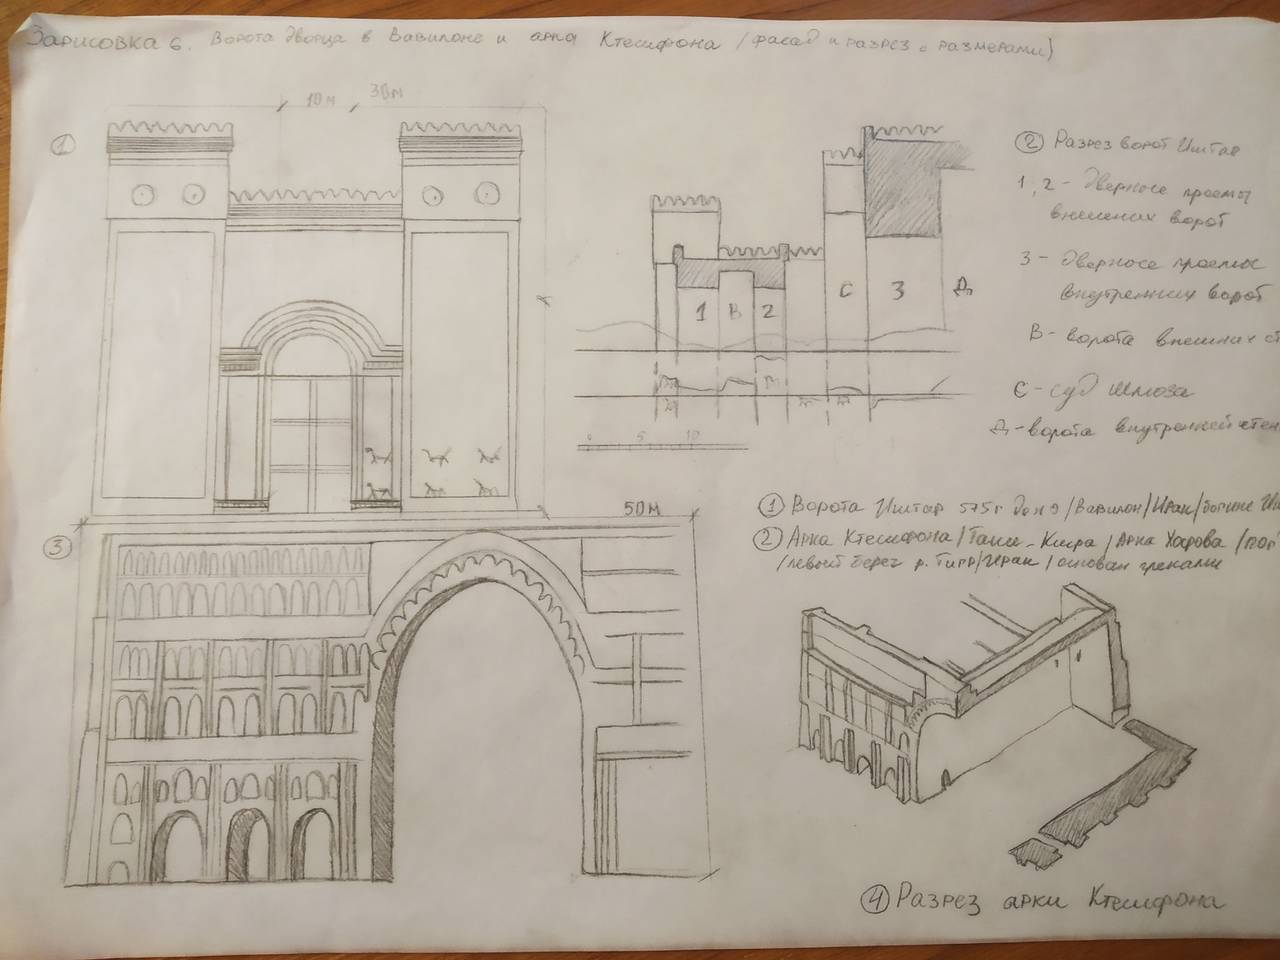 Зарисовка 6. Ворота дворца в Вавилоне и арка Ктесифона (фасад и разрез с размерами)
10м
30м
1
2 Разрез ворот Иштар
1, 2 - Дверносе проемы
внешних ворот
3 - Дверносе проемы
внутренних ворот
В - ворота внешних ст
С - суд шлюза
Д - ворота внутренней стен
1 В 2
С 3 Д
0 5 10
1 Ворота Иштар 575г до н э /Вавилон/Ирак/богине Иш
2 Арка Ктесифона/Таки-Кисра/Арка Хосрова
/левый берег р. Тигр/Ирак/основан греками
3
50м
4 Разрез арки Ктесифона